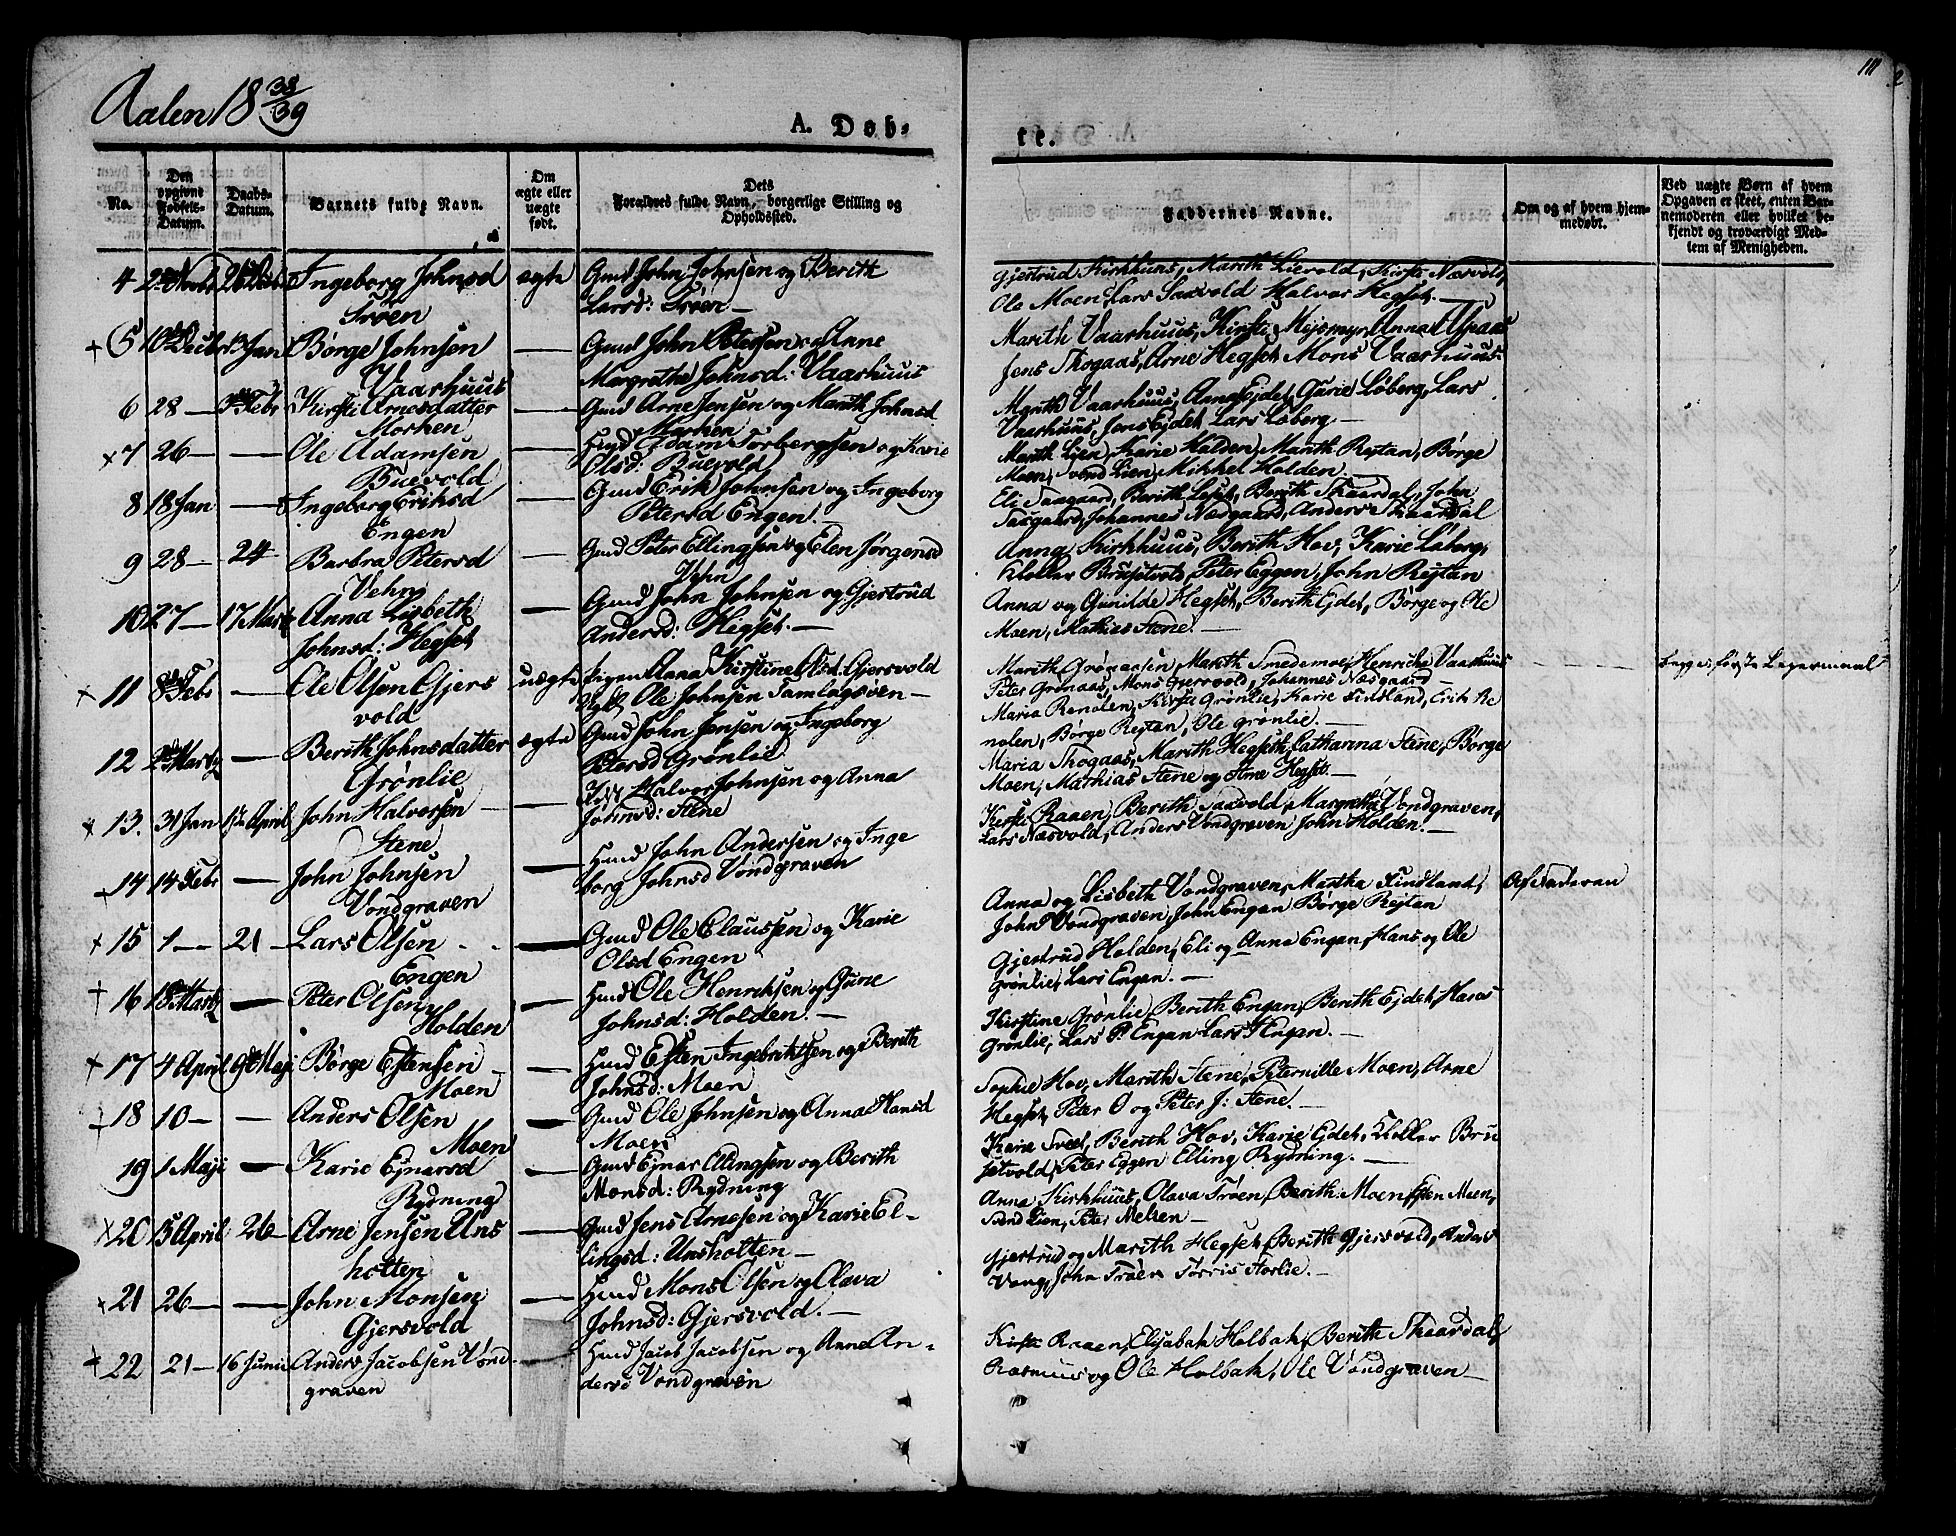 Aalen 18 38/39
A. Døb-
te.
111
No.
Den opgivne Fødsels-Datum.
Daabs-Datum.
Barnets fulde Navn.
Om ægte eller uægte født.
Dets Forældres fulde Navn, borgerlige Stilling og Opholdssted.
Faddernes Navne.
Om og af hvem hjemmedøbt.
Ved uægte Børn af hvem Opgaven er skeet, enten Barnemoderen eller hvilket bekjendt og troværdigt Medlem af Menigheden.
4 Ingeborg Johnsd ægte Gmd John Johnsen og Berith
Trøen Larsd: Trøen —
Gjertrud Kirkhuus, Marith Lievold, Kirsti Næsvold,
Ole Moen, Lars Saxvold Halvor Hegset. —
+ 5 10 Decbr 13 Jan Børge Johnsen — Gmd John Petersen og Anne
Vaarhuus Margrethe Johnsd: Vaarhuus
Marith Vaarhuus, Kirsti Anna
Jens Thogaas, Arne Hegset, Mons Vaarhuus
6 28 — 3 Febr Kirsti Arnesdatter — Gmd Arne Jensen og Marith Johnsd
Morken Morken
Marith Vaarhuus, Anna Ejdet, Gurie Løberg, Lars
Vaarhuus, Jens Ejdet, Lars Løberg —
x 7 26 — — Ole Adamsen — Adam Torbergsen og Karie
Buevold Olsd: Buevold
Marith Lien, Karie Holden, Marith Rejtan, Børge
Moen, Svend Lien, Mikkel Holden. —
8 18 Jan — Ingeborg Eriksd — Gmd Erik Johnsen og Ingeborg
Engen Petersd Engen. —
Eli Aasgaard, Berith Leset, Berith Skaardal, John
Aasgaard, Johannes Næsgaard, Anders Skaardal
9 28 — 24 Barbra Petersd — Gmd Peter Ellingsen og Elen Jørgensd
Vehn Vehn
Anna Kirkhuus, Berith Hov, Karie Løberg,
Kloller Brusetvold, Peter Eggen, John Rejtan
10 27 — 17 Marts Anna Lisbeth — Gmd John Johnsen og Gjertrud
Johnsd: Hegset Andersd: Hegset. —
Anna og Gunilde Hegset, Berith Ejdet, Børge og Ole
Moen, Mathies Stene. —
x 11 8 Febr — Ole Olsen Gjers uægte Pigen Anna Kirstine Olsd. Gjersvold
vold Ole Johnsen Tamlagsøen —
Marith Grønaasen, Marith Smedemoe, Henrich Vaarhuus
Peter Grønaas, Mons Gjersvold, Johannes Næsgaard —
begges første Lejermaal
12 2 Marts — Berith Johnsdatter ægte Gmd John Jensen og Ingeborg
Grønlie Petersd Grønlie
Maria Renolen, Kirsti Grønlie, Karie Findland, Erik Re
nolen, Børge Rejtan, Ole Grønlie. —
x 13. 31 Jan 1 April John Halvorsen — Halvor Johnsen og Anna
Stene Johnsd: Stene
Maria Thogaas, Marith Hegset, Catharina Stene, Børge
Moen, Mathias Stene og Arne Hegset. —
+ 14 14 Febr — John Johnsen — Hmd John Andersen og Inge
Vondgraven borg Johnsd Vondgraven
Kirsti Raaen, Berith Saxvold, Margrethe Vondgraven,
Lars Næsvold, Anders Vondgraven John Holden. —
+ 15 1 — 21 — Lars Olsen — Gmd Ole Claussen og Karie
Engen Olsd Engen
Anna og Lisbeth Vondgraven, Martha Findland,
John Vondgraven, John Engan Børge Rejtan
Af Faderen
+ 16 18 Marts — Peter Olsen — Hmd Ole Henriksen og Gune
Holden Johnsd: Holden. —
Gjertrud Holden, Eli og Anna Engan, Hans og Ole
Grønlie, Lars Engan. —
+ 17 4 April 9 Maj Børge Estensen — Hmd Esten Ingebrigtsen og Berith
Moen Johnsd: Moen
Kirstine Grønlie, Berith Engan, Berith Ejdet, Hans
Grønlie, Lars P. Engan Lars Engan. —
18 10 — — Anders Olsen — Gmd Ole Johnsen og Anna Hansd
Moen Moen
Sophie Hov, Marith Stene, Peternille Moen, Arne
Hegset, Peter O og Peter J: Stene. —
19 1 Maji — Karie Ejnarsd — Gmd Ejnar Elingsen og Berith
Rydning Monsd: Rydning
Karie Svedt, Berith Hov, Karie Ejdet, Kloller Bru
setvold, Peter Eggen Elling Rydning. —
x 20 15 April 26 — Arne Jensen Uns — Gmd Jens Arnesen og Karie El-
holten lingsd: Unsholten —
Anna Kirkhuus, Olava Trøen, Berith Moen, Esten Moen,
Svend Lien, Peter Nelsen —
+ 21 26 — — John Monsen — Hmd Mons Olsen og Olava
Gjersvold Johnsd: Gjersvold. —
Gjertrud og Marith Hegset, Berith Gjersvold, Anders
Vang, John Trøen Torris Aorlie. —
+ 22 21 — 16 Junie Anders Jacobsen Vond — Hmd Jacob Jacobsen og Anne An-
graven dersd Vondgraven
Kirsti Raaen, Elisabeth Holbak, Berith Skaardal,
Rasmus og Ole Holbak, Ole Vondgraven —